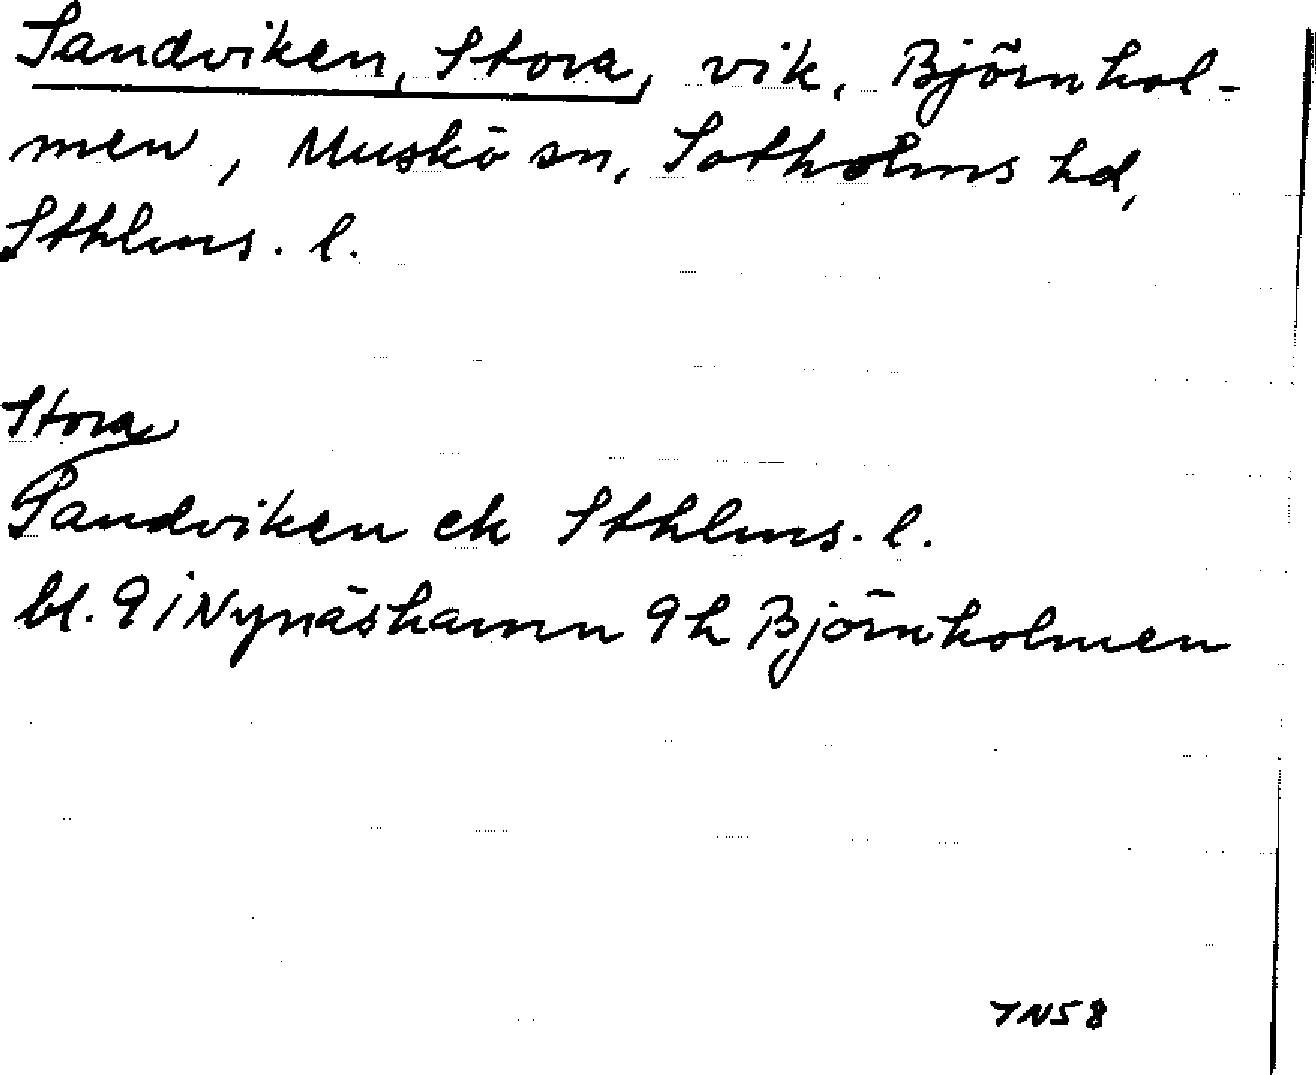 Sandviken, Stora, vik, Björnhol-
men, Muskö sn, Sotholms hd,
Sthlms. l.
Stora
Sandviken ek Sthlms. l.
bl. 9 i Nynäshamn 9h Björnholmen
TNS 8